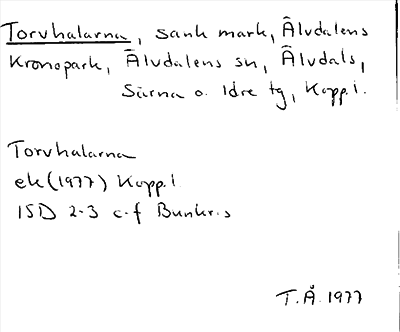 Torvhalarna, sank mark, Älvdalens
Kronopark, Älvdalens sn, Älvdals,
Särna o. Idre tg, Kopp.l.
Torvhalarna
ek (1977) Kopp.l
ISD 2-3 c-f Bunkr.s
T.Å. 1977